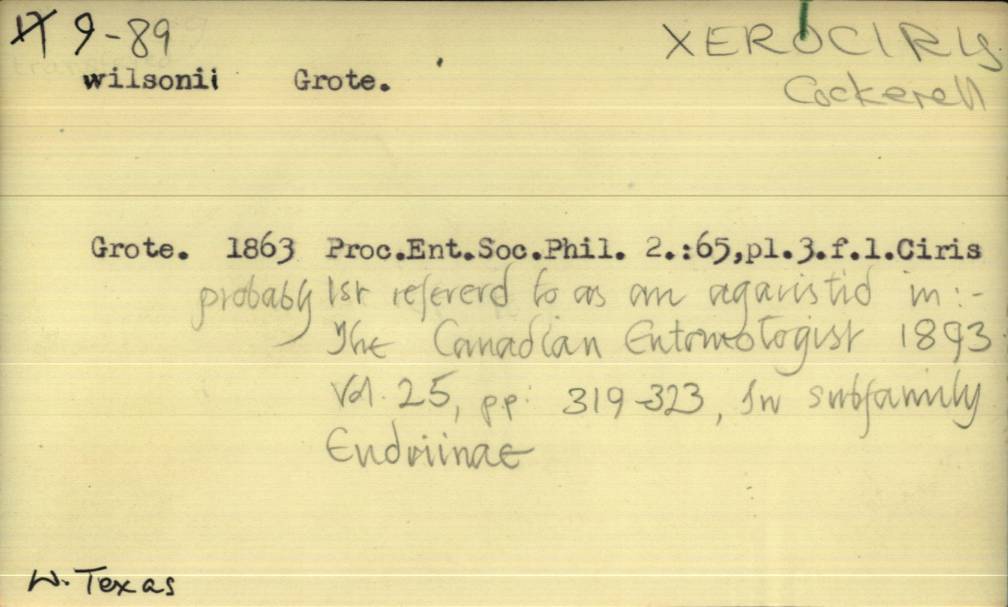 9-89
XEROCIRIS
wilsonii Grote.
Cockerell
Grote. 1863 Proc.Ent.Soc.Phil. 2.:65,pl.3.f.1.Ciris
probably 1st refererd to as an agaristid in:-
The Canadian Entomologist 1893
Vol. 25, pp. 319-323, In subfamily
Eudriinae
W. Texas